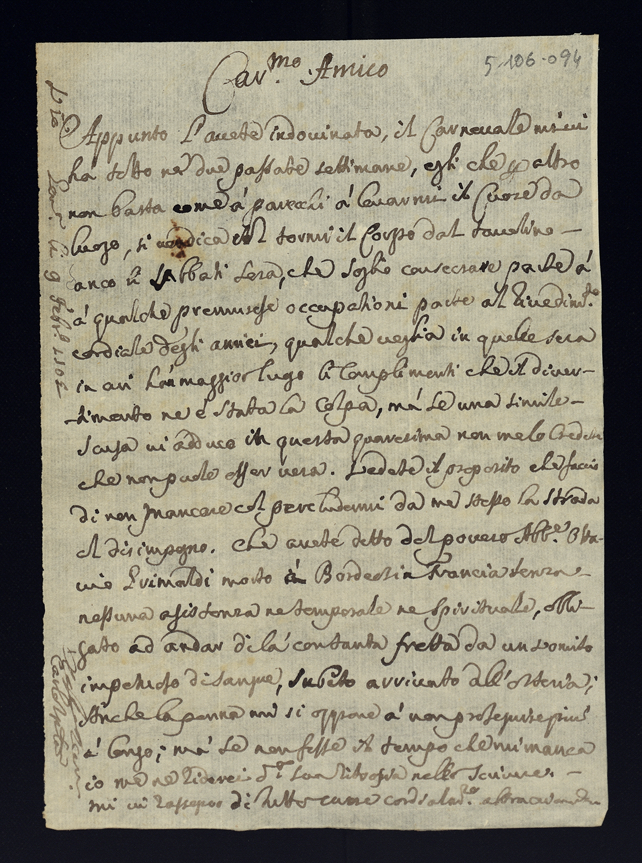 5-106-094
Car.mo Amico
Appunto l'avete indovinata, il Carnevale
ha fatto ne' due passate settimane, egli che altro
non basta come á parecchi á levarmi il Cuore da
luogo, si il tormi il Corpo dal tavolino
anco li sabbati sera, che soglio consecrare parte á
á qualche premurose occupationi parte al
cordiale degli amici, qualche veglia in quelle sera
in cui han maggior luogo li Complimenti che il diver-
timento ne é stata la colpa, má se una simile
scusa vi adduco in questa quaresima non me lo Credete
che non puole esser vera. Vedete il proposito che faccio
di non mancare col da me stesso la strada
al disimpegno. Che avete detto del povero Abb.e Otta-
vio Grimaldi morto in Bordeos in Francia senza
nessuna asistenza ne temporale ne spirituale, obli-
gato ad andar di lá con tanta fretta da un vomito
impetuoso di sangue, subito arrivato all'osteria;
Anche la penna mi si oppone á non proseguire piú
á longo; má se non fosse il tempo che mi manca
io me ne riderei di sua ritrosia nello scrivere
mi vi rassegno di tutto cuore
9 Febr.